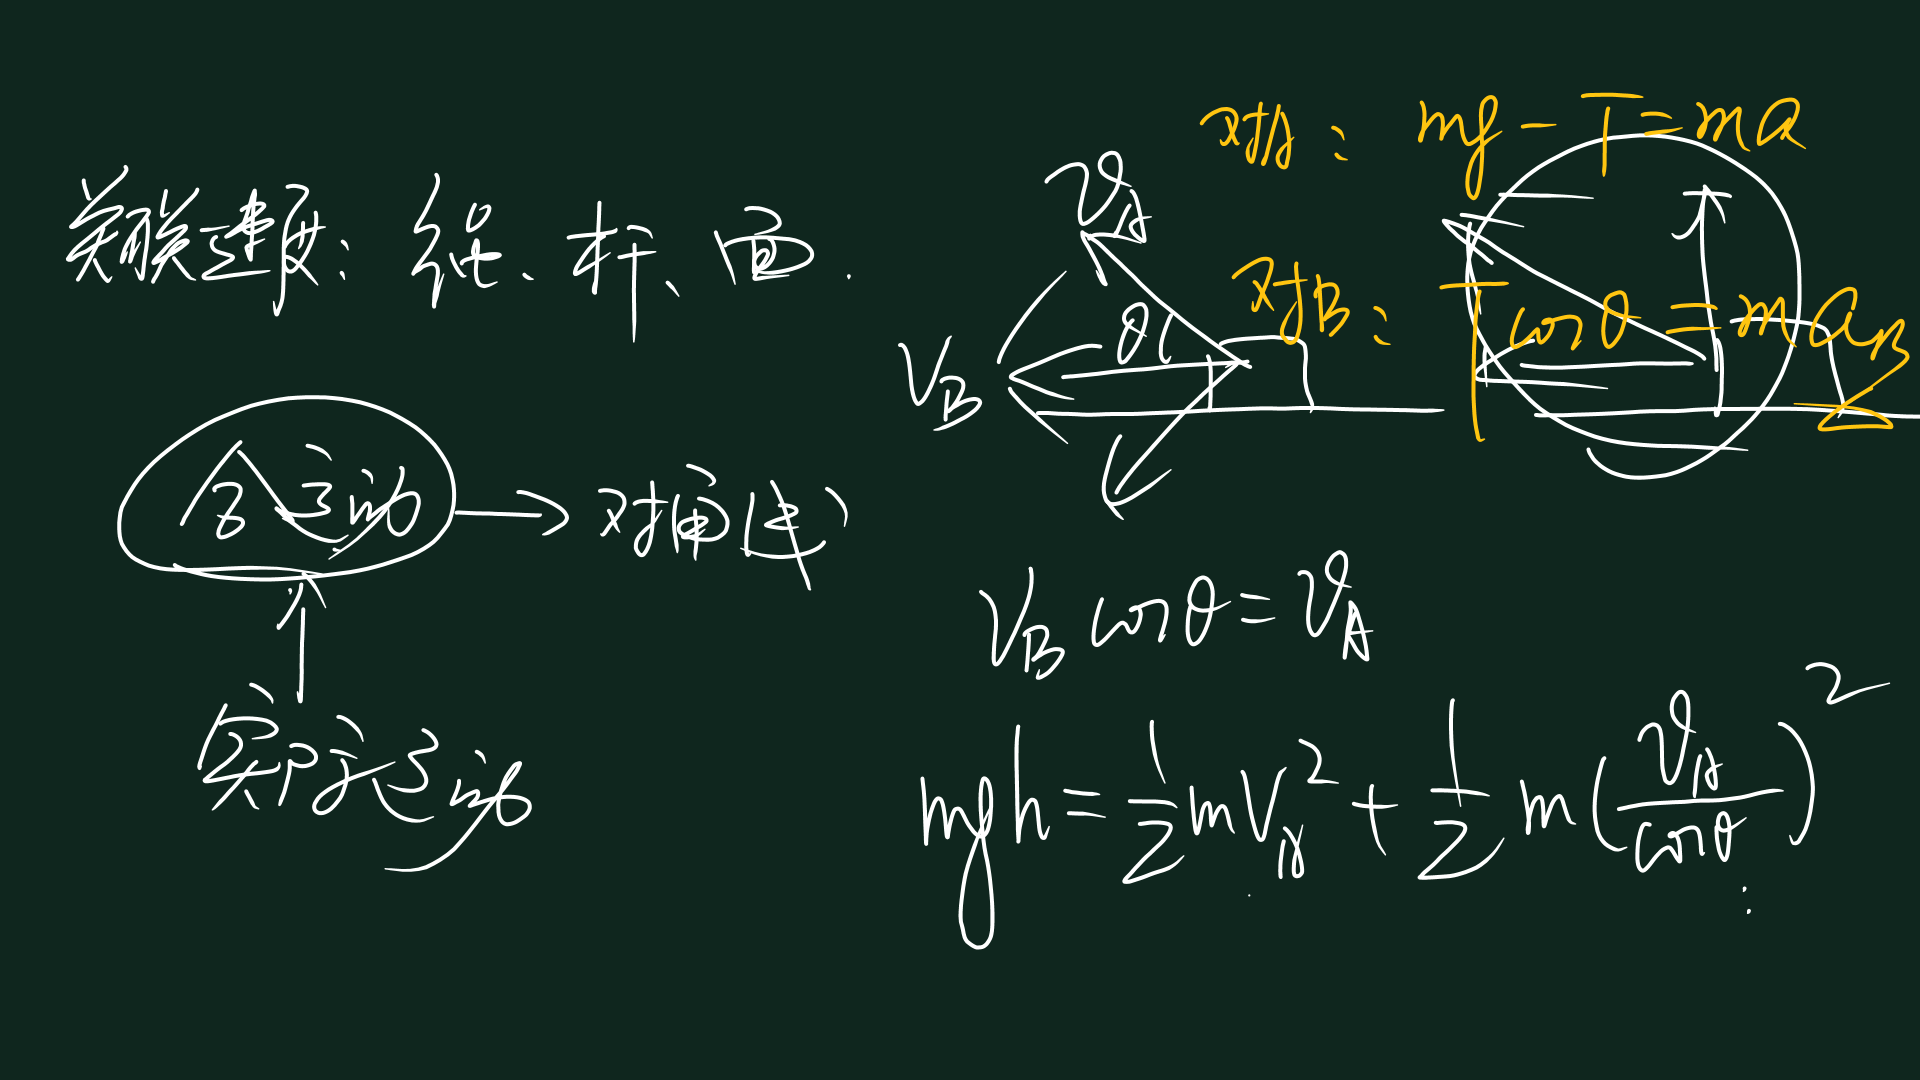 关联速度：绳、杆、面.
合运动 → 对角线
实际运动
对A： mg - T = ma
对B： T cosθ = m a_B
v_A
θ
V_B
V_B cosθ = v_A
mgh = 1/2 m V_A^2 + 1/2 m (v_A/cosθ)^2